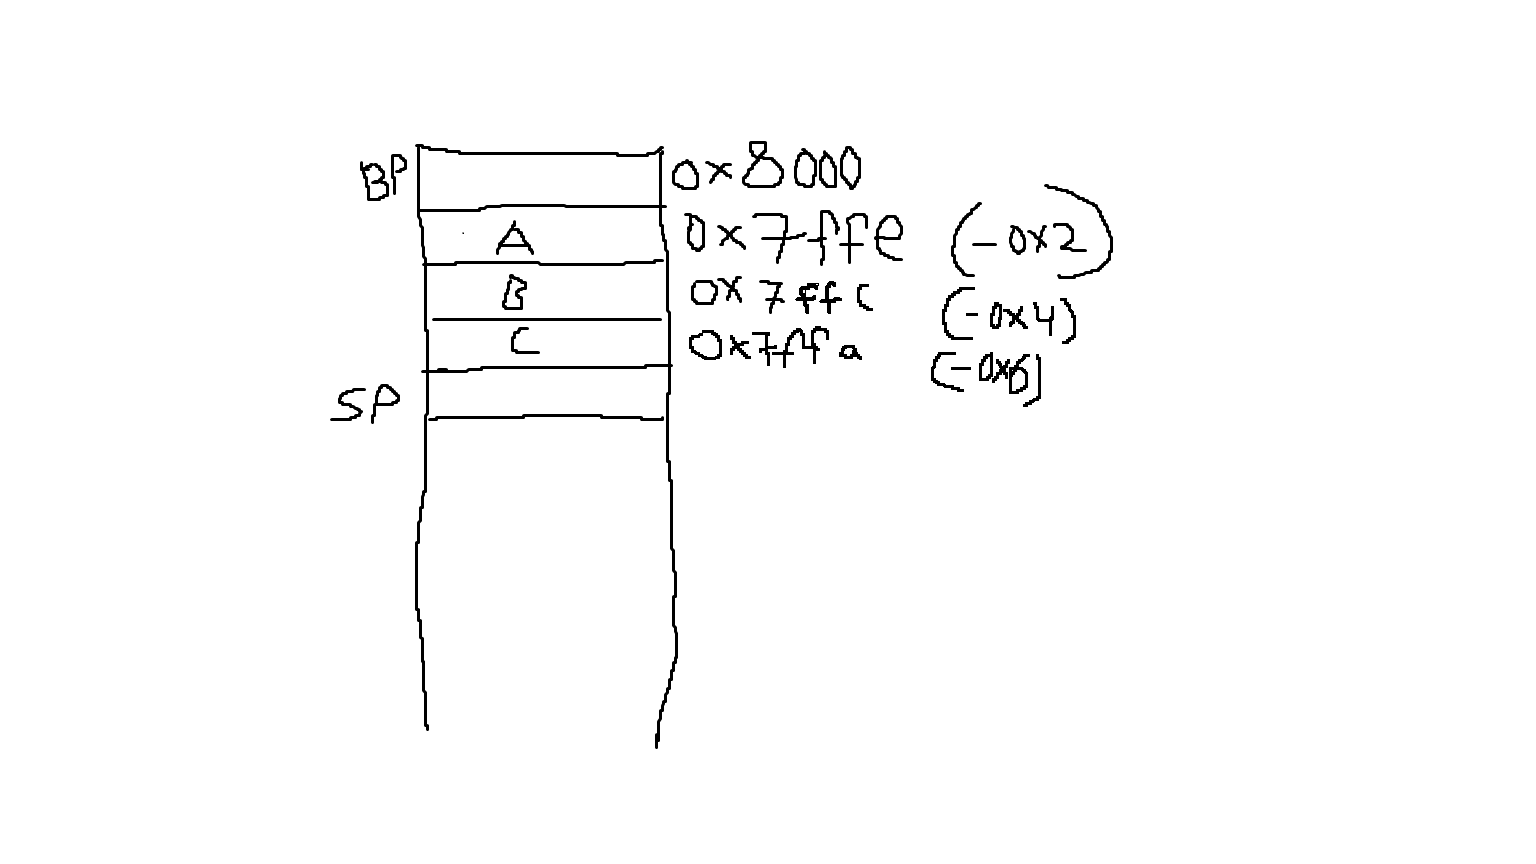 BP 0x8000
A 0x7ffe (-0x2)
B 0x7ffc (-0x4)
C 0x7ffa (-0x6)
SP